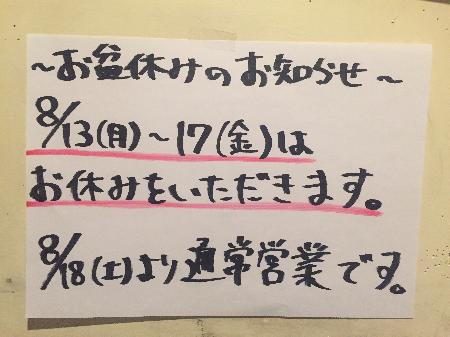 ～お盆休みのお知らせ～
8/13(月)～17(金)は
お休みをいただきます。
8/18(土)より通常営業です。